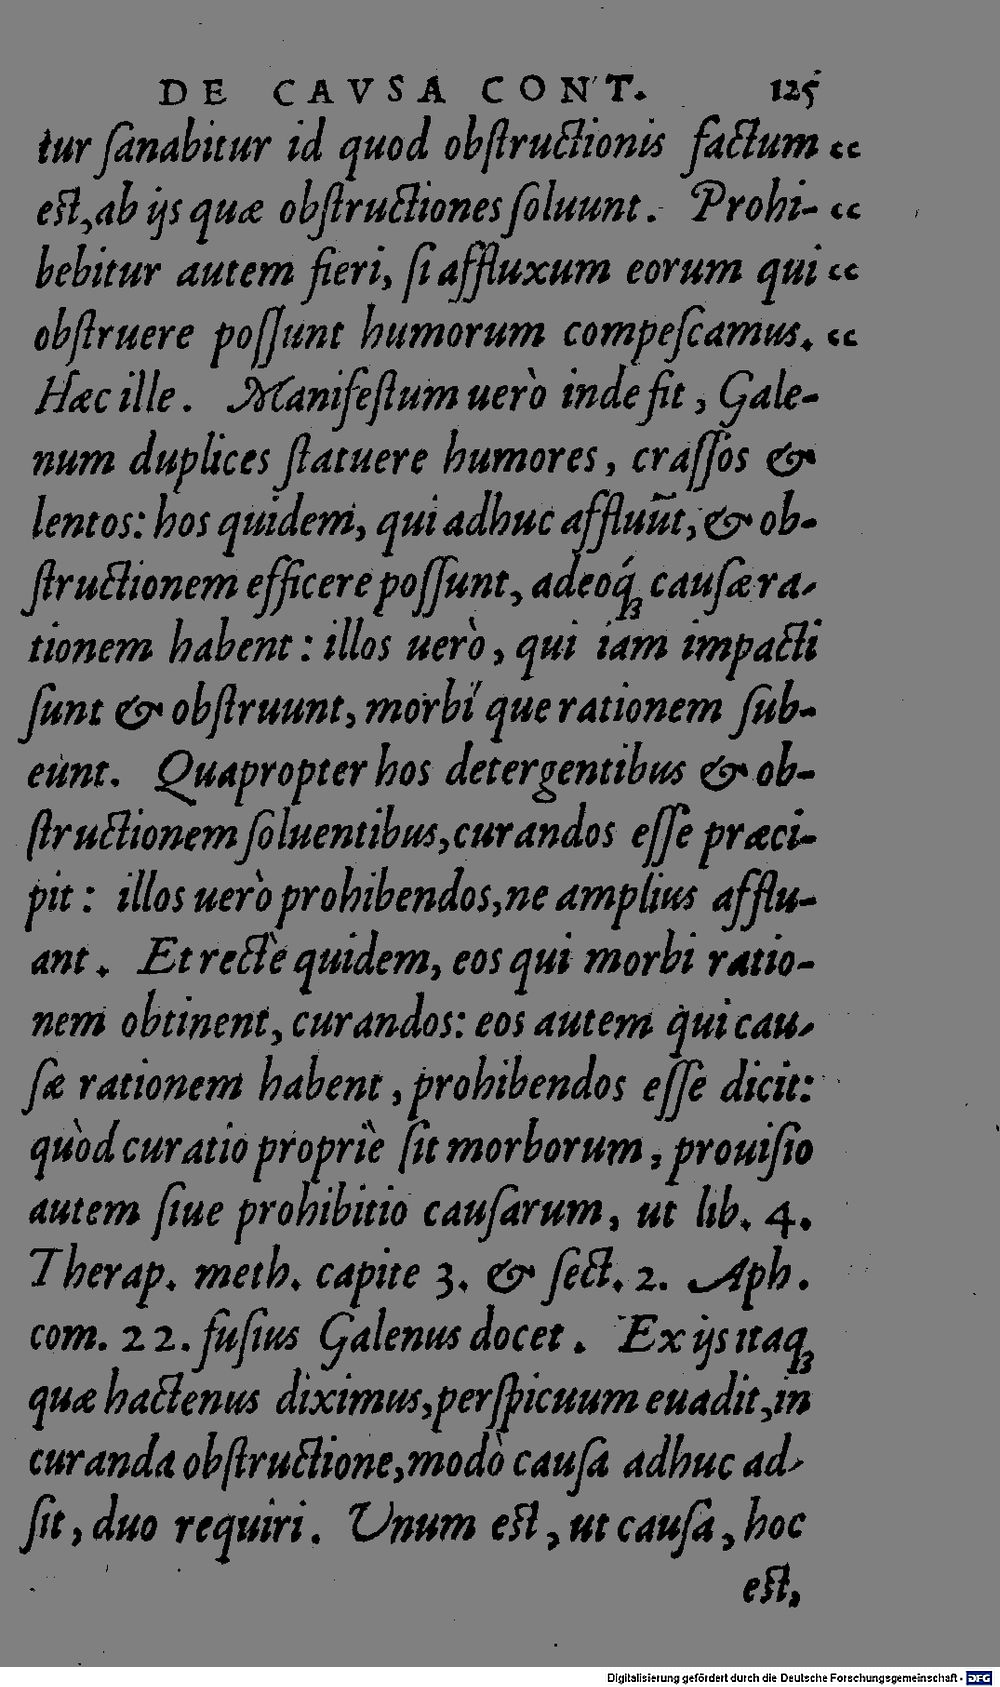 DE CAVSA CONT. 125
tur ſanabitur id quod obſtructionis factum “
eſt, ab ijs quæ obſtructiones ſoluunt. Prohi- “
bebitur autem fieri, ſi affluxum eorum qui “
obſtruere poſſunt humorum compeſcamus. “
Hæc ille. Manifeſtum uerò inde fit, Gale-
num duplices ſtatuere humores, craſſos &
lentos: hos quidem, qui adhuc affluūt, & ob-
ſtructionem efficere poſſunt, adeoq́ꝫ cauſæ ra-
tionem habent: illos uerò, qui iam impacti
ſunt & obſtruunt, morbi que rationem ſub-
eunt. Quapropter hos detergentibus & ob-
ſtructionem ſoluentibus, curandos eſſe præci-
pit: illos uerò prohibendos, ne amplius afflu-
ant. Et rectè quidem, eos qui morbi ratio-
nem obtinent, curandos: eos autem qui cau-
ſæ rationem habent, prohibendos eſſe dicit:
quòd curatio propriè ſit morborum, prouiſio
autem ſiue prohibitio cauſarum, ut lib. 4.
Therap. meth. capite 3. & ſect. 2. Aph.
com. 22. fuſius Galenus docet. Ex ijs itaqꝫ
quæ hactenus diximus, perſpicuum euadit, in
curanda obſtructione, modò cauſa adhuc ad-
ſit, duo requiri. Unum eſt, ut cauſa, hoc
eſt,
Digitalisierung gefördert durch die Deutsche Forschungsgemeinschaft - DFG